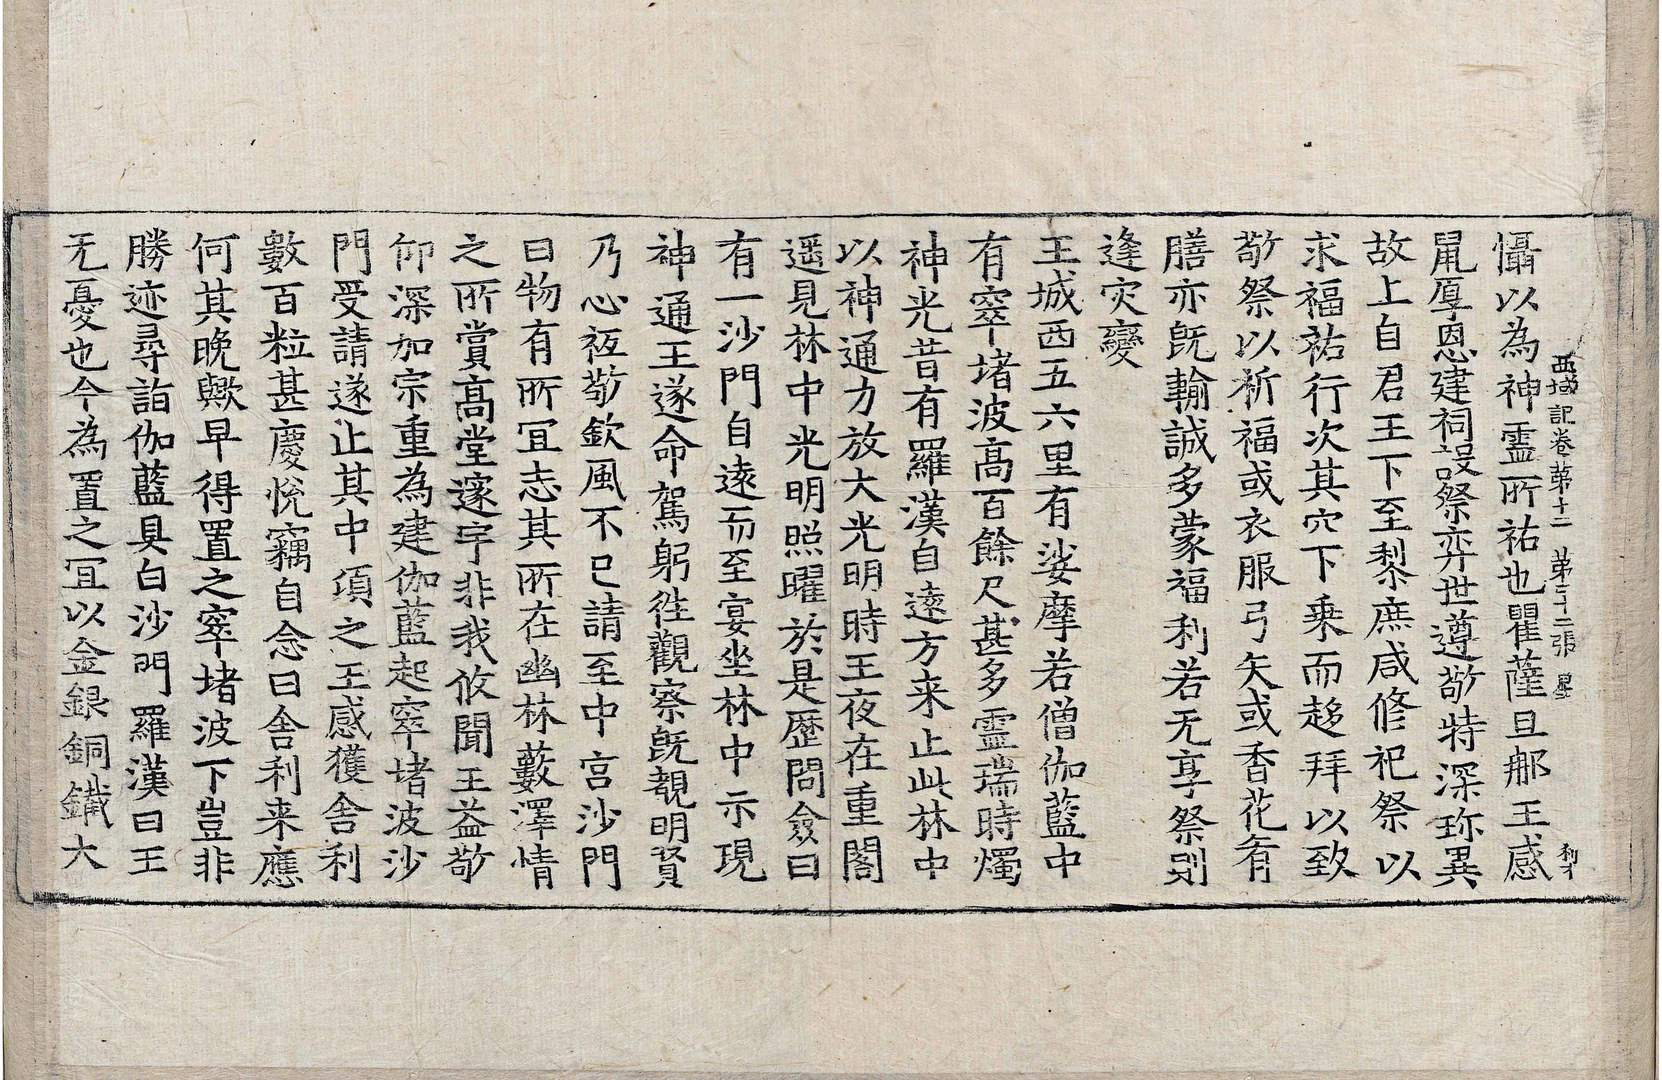 西域記卷第十二　第二十二張　星
懾以為神靈所祐也瞿薩旦那王感
鼠厚恩建祠設祭弈世遵敬特深珎異
故上自君王下至黎庶咸修祀祭以
求福祐行次其穴下乘而趍拜以致
敬祭以祈福或衣服弓矢或香花肴
膳亦旣輸誠多蒙福利若无享祭則
逢灾變
王城西五六里有娑摩若僧伽藍中
有窣堵波高百餘尺甚多靈瑞時燭
神光昔有羅漢自遠方来止此林中
以神通力放大光明時王夜在重閣
遥見林中光明照曜於是歷問僉曰
有一沙門自遠而至宴坐林中示現
神通王遂命駕躬徃觀察旣覩明賢
乃心祗敬欽風不已請至中宮沙門
曰物有所冝志其所在幽林藪澤情
之所賞髙堂邃宇非我攸聞王益敬
仰深加宗重為建伽藍起窣堵波沙
門受請遂止其中頃之王感獲舍利
數百粒甚慶悅竊自念曰舍利来應
何其晚歟早得置之窣堵波下豈非
勝迹尋詣伽藍具白沙門羅漢曰王
无憂也今為置之冝以金銀銅鐵大